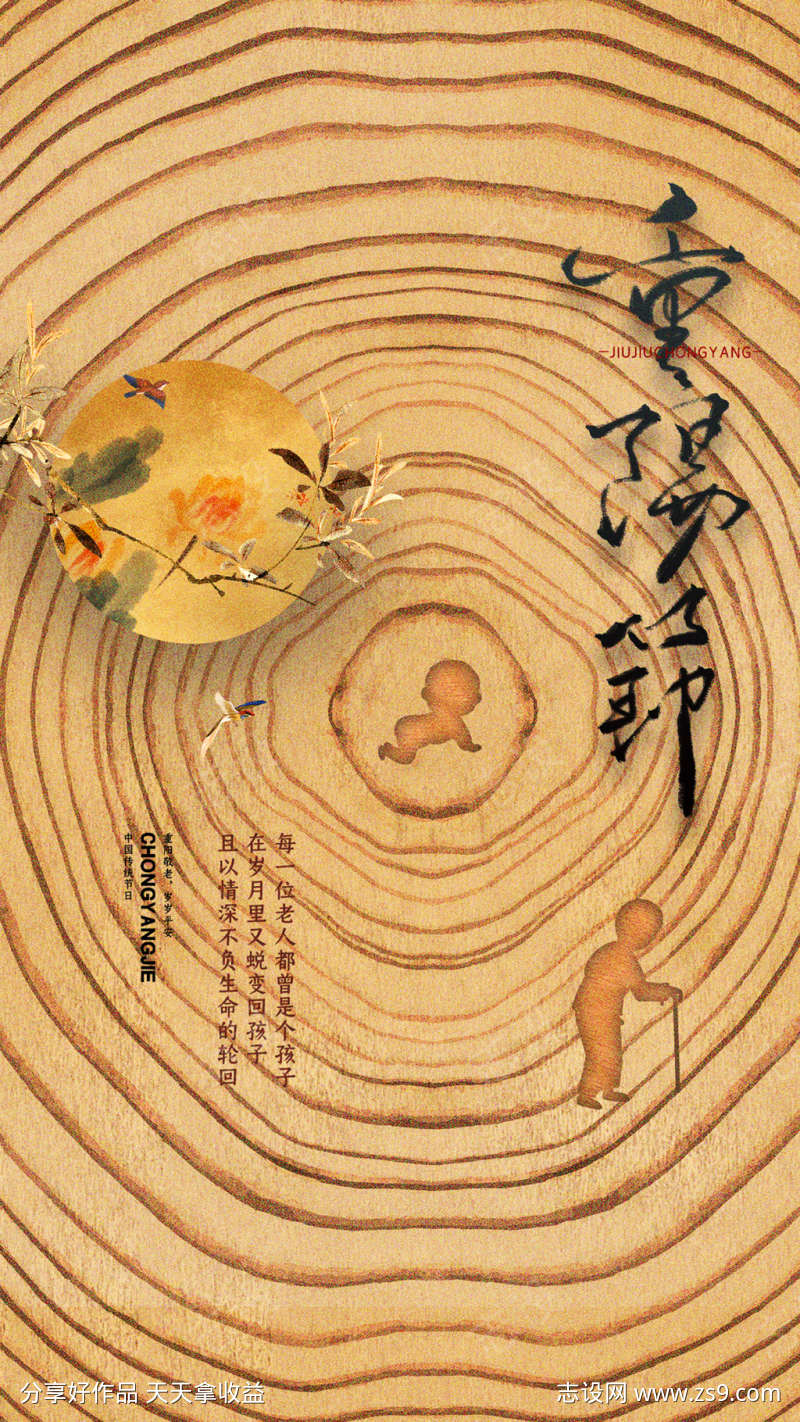 重陽節
—JIUJIUCHONGYANG—
每一位老人都曾是个孩子
在岁月里又蜕变回孩子
且以情深不负生命的轮回
重阳敬老，岁岁平安
CHONGYANGJIE
中国传统节日
分享好作品 天天拿收益
志设网 www.zs9.com